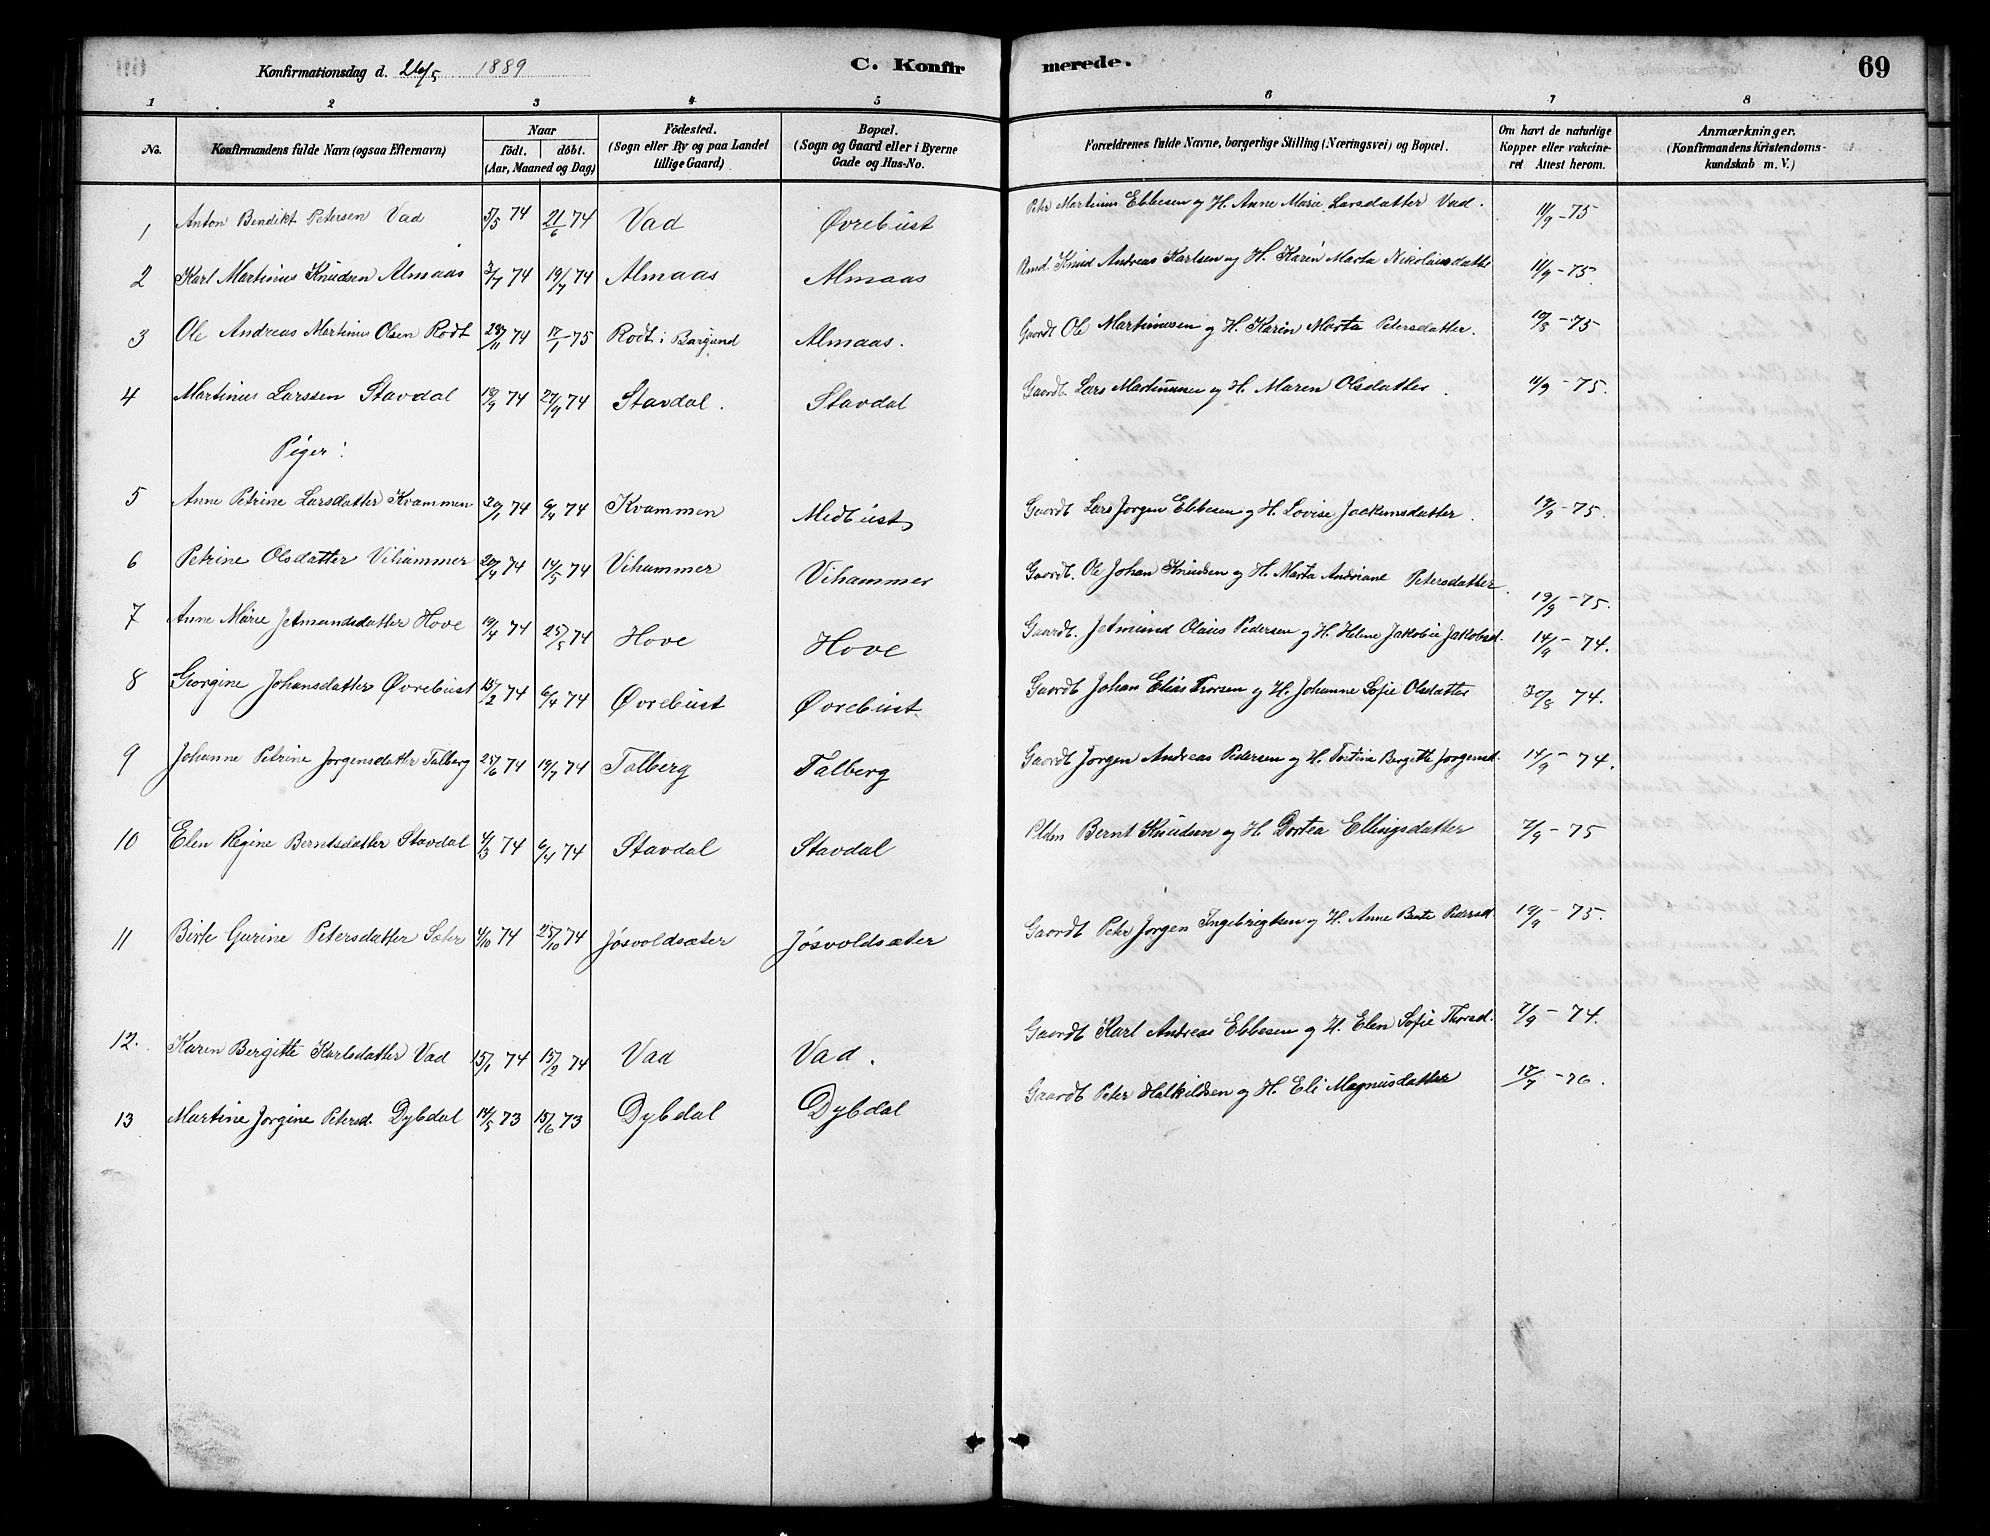 Konfirmationsdag d. 26/5 1889 C. Konfirmerede. 69
1 2 3 4 5 6 7 8
No. Konfirmandens fulde Navn (ogsaa Efternavn) Naar födt. döbt. (Aar, Maaned og Dag) Födested. (Sogn eller By og paa Landet tillige Gaard) Bopæl. (Sogn og Gaard eller i Byerne Gade og Hus-No. Forældrenes fulde Navne, borgerlige Stilling (Næringsvei) og Bopæl. Om havt de naturlige Kopper eller vakcineret Attest herom. Anmærkninger. (Konfirmandens Kristendomskundskab m. V.)
1 Anton Bendikt Petersen Vad 5/5 74 21/6 74 Vad Øvrebust Peter Martinus Ebbesen og H. Anne Marie Larsdatter Vad. 11/9 - 75
2 Karl Martinus Knudsen Almaas 3/7 74 19/7 74 Almaas Almaas Knud Andreas Karlsen og H. Karen Marta Nikolausdatte 11/9 - 75.
3 Ole Andreas Martinus Olsen Rodt 28/11 74 17/1 - 75 Rodt i Borgund Almaas. Gaardt Ole Martinusen og H. Karen Marta Petersdatter. 19/8 - 75
4 Martinus Larssen Stavdal 19/9 74 27/9 74 Stavdal. Stavdal Gaardt. Lars Martinussen og H. Maren Olsdatter. 11/9 - 75.
Piger:
5 Anne Petrine Larsdatter Kvammen 30/1 74 6/4 74 Kvammen Medbust Gaardt Lars Jorgen Ebbesen og H. Lovise Jackumsdatter. 19/9 - 75.
6 Petrine Olsdatter Vihammer 20/4 74 14/5 74 Vihammer Vihammer Gaardt. Ole Johan Knudsen og H. Marta Andriane Petersdatter. 19/9 - 75.
7 Anne Marie Jetmundsdatter Hove 19/4 74 25/5 74 Hove Hove Gaardt. Jetmund Olaus Pedersen og H. Helene Jakobie Jakobsd. 14/9 - 74.
8 Georgine Johansdatter Øvrebust 15/2 74 6/4 74 Øvrebust Øvrebust. Gaardt Johan Elias Torsen og H. Johanne Sofie Olsdatter 30/8 74.
9 Johanne Petrine Jorgensdatter Talberg 25/6 74 19/7 74 Talberg Talberg Gaardt Jorgen Andreas Pedersen og H. Bergitte Jorgensd. 14/9 - 74.
10 Elen Regine Berntsdatter Stavdal 4/3 74 6/4 74 Stavdal Stavdal Bernt Knudsen og H Dortea Ellingsdatter 7/9 - 75
11 Birte Gurine Petersdatter Sæter 4/10 74 25/10 74 Jøsvoldsæter Jøsvoldsæter Gaardt Peter Jorgen Ingebrigtsen og H. Anne Bente Pedersd. 19/9 - 75.
12. Karen Bergitte Karlsdatter Vad 15/1 74 15/2 74 Vad Vad. Gaardt Karl Andreas Ebbesen og H. Elen Sofie Thorsd. 7/9 - 74.
13 Martine Jorgine Petersd. Dybdal 14/5 73 15/6 73 Dybdal Dybdal Gaardt Peter Halkildsen og H. Eli Magnusdatter 17/7 - 76.